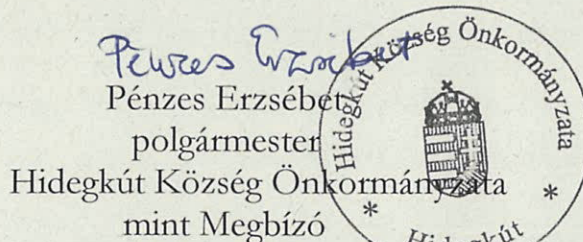 Pénzes Erzsébet
Pénzes Erzsébet
polgármester
Hidegkút Község Önkormányzata
mint Megbízó
Hidegkút Község Önkormányzata
* *
Hidegkút